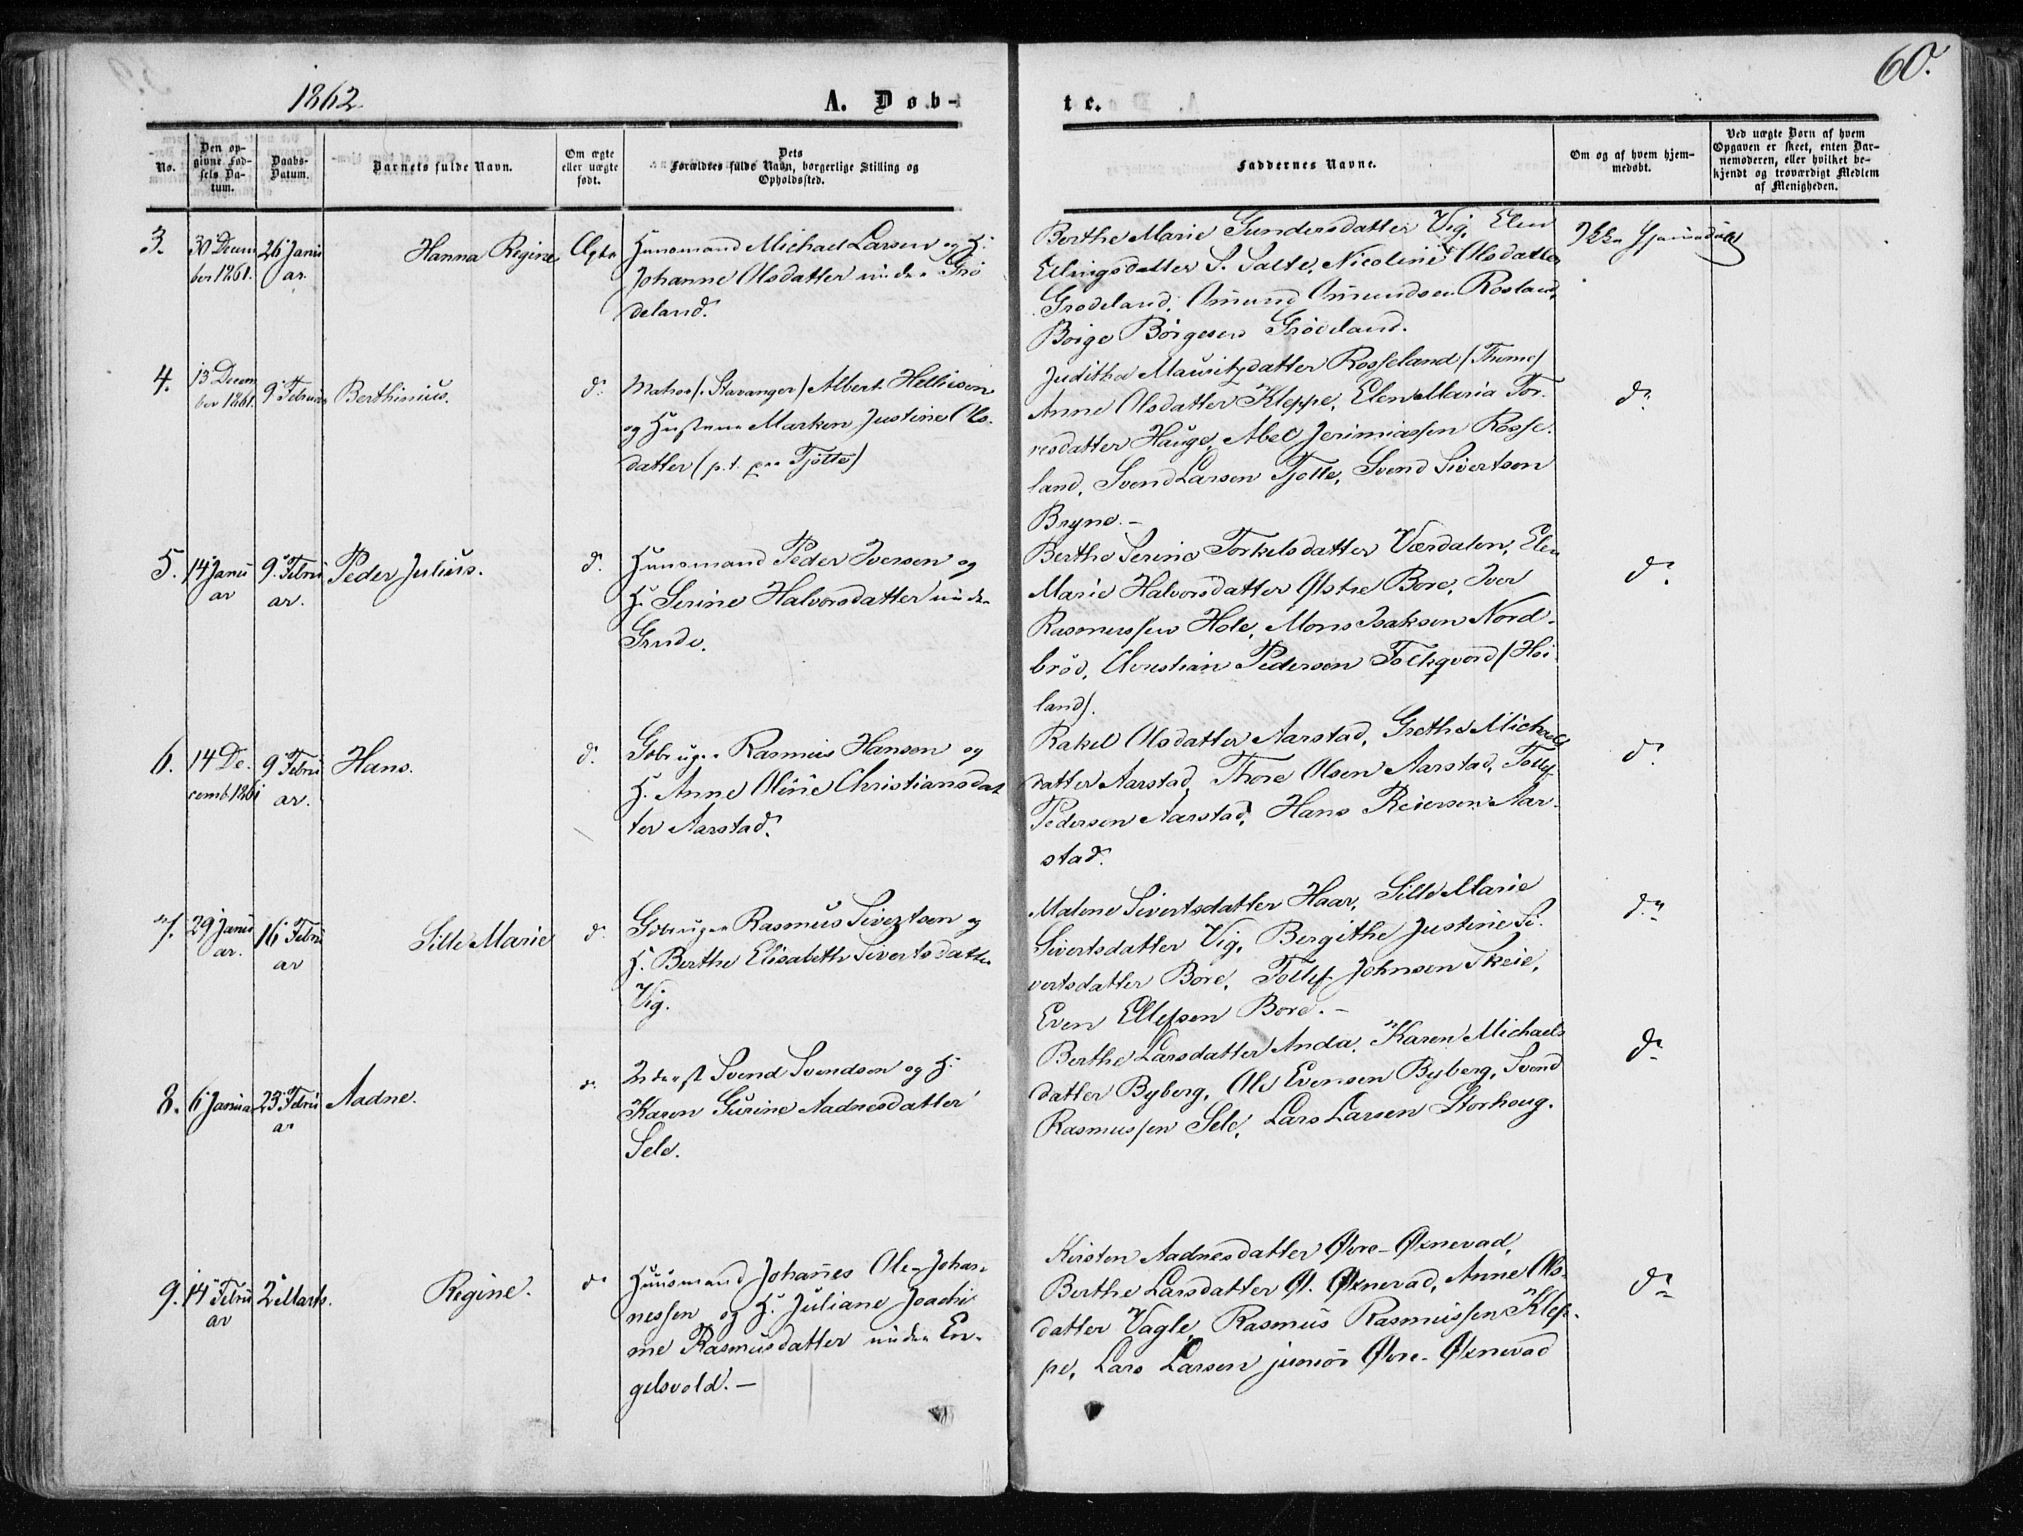 60.
1862.
A. Døb-
te.
No.
Den op-
givne Fød-
sels Da-
tum.
Daabs-
Datum.
Barnets fulde Navn.
Om ægte
eller uægte
født.
Dets
Forældres fulde Navn, borgerlige Stilling og
Opholdssted.
Faddernes Navne.
Om og af hvem hjem-
medøbt.
Ved uægte Børn af hvem
Opgaven er skeet, enten Bar-
nemoderen, eller hvilket be-
kjendt og troværdigt Medlem
af Menigheden.
3.
30 Decem
ber 1861.
26 Janu
ar.
Hanna Regine
Ægte
Huusmand Michael Larsen og H.
Johanne Olsdatter under Grø
deland.
Berthe Marie Gundersdatter Vig, Elen
Ellingsdatter S. Salte, Nicoline Olsdatter
Grødeland, Omund Omundsen Rosland,
Börge Börgesen Grödeland.
Ikke Hjemmedøbt
4.
13 Decem
ber 1861.
9 Februar
Berthinius.
do
Matros (Stavanger) Albert Helliesen
og Hustrue Marken Justine Ols-
datter (p.t. paa Tjøtte)
Juditha Mauritzdatter Rosseland (Thime)
Anne Olsdatter Kleppe, Elen Maria Tor-
resdatter Hauge, Abel Jerimiassen Rosse-
land, Svend Larsen Tjotte, Svend Sivertsen
Bryne.-
do
5.
14 Janu
ar
9. Febru
ar.
Peder Julius.
do
Huusmand Peder Iversen og
H. Serine Halvorsdatter under
Grude.
Berthe Serine Torkelsdatter Værdalen, Elen
Marie Halvorsdatter Østre Bore, Iver
Rasmussen Hole, Mons Isaksen Nord-
brød, Christian Pedersen Folkqvord (Høi-
land).
do
6.
14 De-
cemb. 1861
9 Febru
ar.
Hans.
do
Gbruger Rasmus Hansen og
H. Anne Oline Christiansdat
ter Aarstad.
Rakel Olsdatter Aarstad, Grethe Michaels
datter Aarstad, Thore Olsen Aarstad, Tollef
Pedersen Aarstad, Hans Reiersen Aar-
stad.
do
7.
29 Janu
ar.
16 Febru
ar
Sille Marie
do
Gbruger Rasmus Sivertsen og
H. Berthe Elisabeth Sivertsdatter
Vig.
Malene Sivertsdatter Haar, Sille Marie
Sivertsdatter Vig, Bergithe Justine Si-
vertsdatter Bore, Tollef Johnsen Skeie,
Even Ellefsen Bore.-
do
8.
6 Januar
23 Febru
ar
Aadne.
do
Inderst Svend Svendsen og H.
Karen Gurine Aadnesdatter
Sele.
Berthe Larsdatter Anda, Karen Michaels
datter Byberg, Ole Evensen Byberg, Svend
Rasmussen Sele, Lars Larsen Storhoug.
do
9.
14 Febru
ar
2 Marts.
Regine.
do
Huusmand Johannes Ole Johan-
nessen og H. Juliane Joachi
me Rasmusdatter under En-
gelsvold.-
Kirsten Aadnesdatter Øvre-Øxnevad,
Berthe Larsdatter Ø. Øxnevad, Anne Ols-
datter Vagle, Rasmus Rasmussen Klep-
pe, Lars Larsen junior Øvre-Øxnevad
do